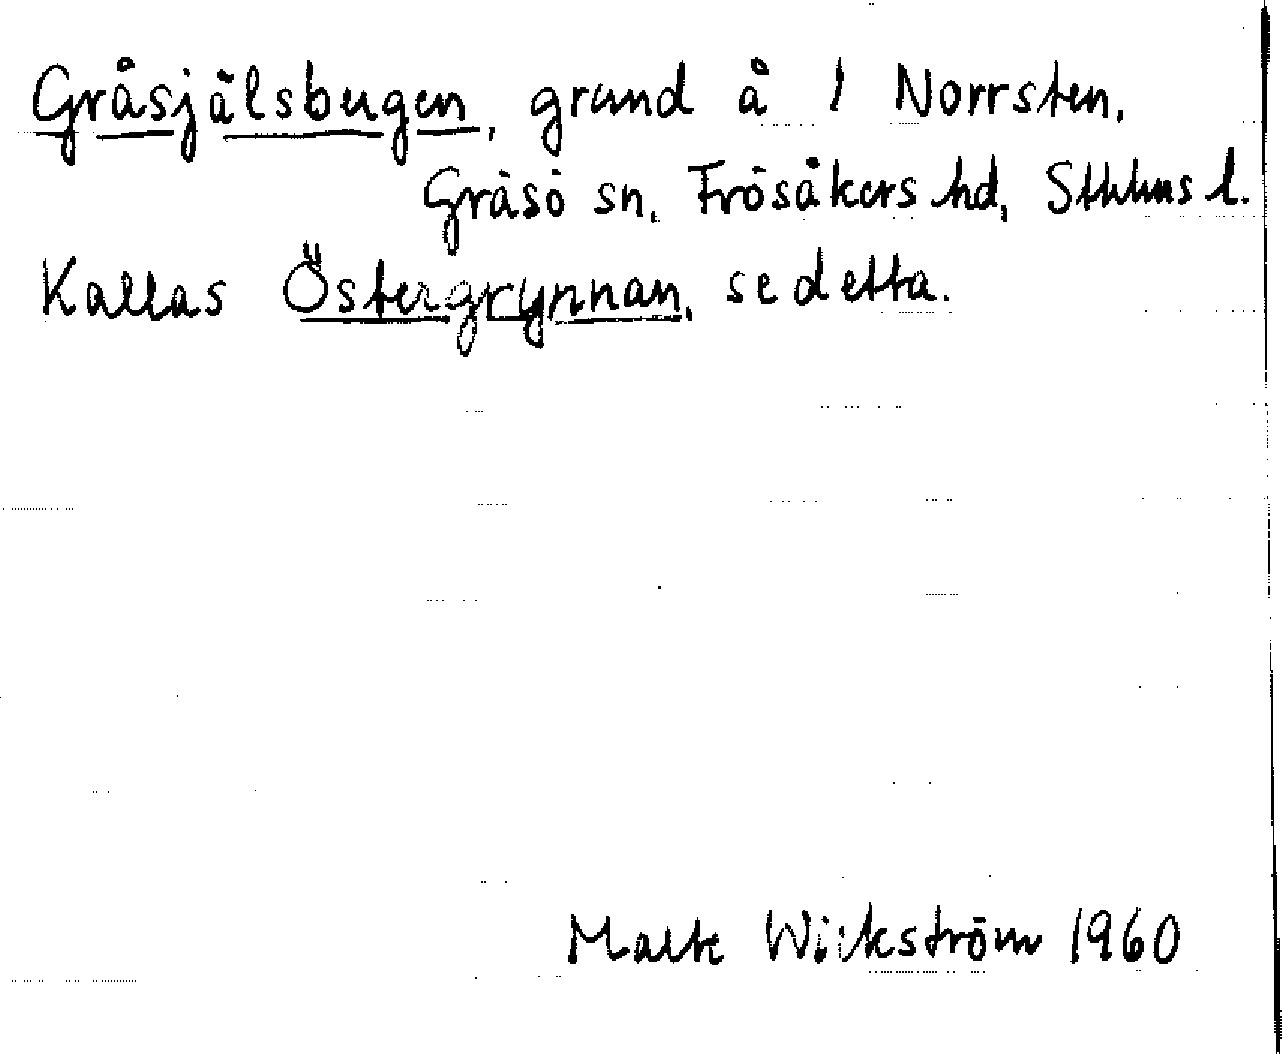 Gråsjälsbugen, grund å 1 Norrsten,
Gräsö sn, Frösåkers hd, Sthlms l.
Kallas Östergrynnan, se detta.
Malte Wickström 1960